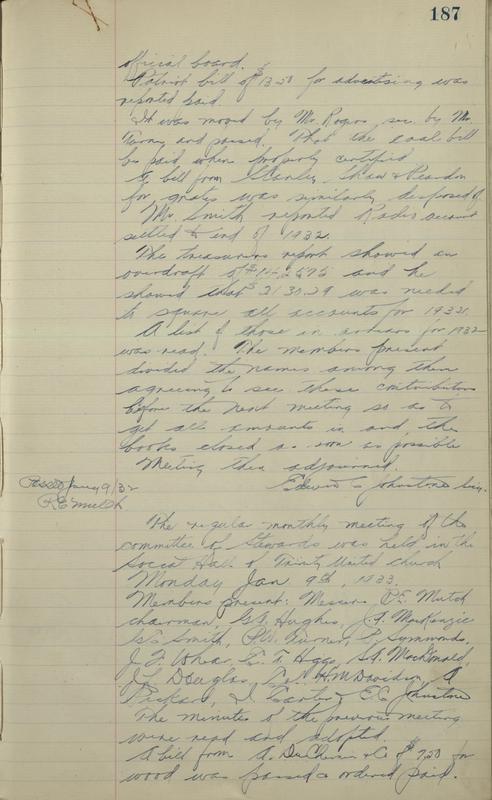 187
official board.
Patriot bill of $13.50 for advertising was
reported paid.
It was moved by Mr. Rogers, sec. by Mr.
Turner and passed. That the coal bill
be paid when properly certified
A bill from Stanley, Shaw & Peardon
for grates was similarly disposed of
Mr. Smith reported Radio account
settled to end of 1932.
The treasurers report showed an
overdraft of and he
showed that $2130.29 was needed
to square all accounts for 1932.
A list of those in arrears for 1932
was read. The members present
divided the names among them
agreeing to see these contributors
before the next meeting so as to
get all amounts in and the
books closed as soon as possible
Meeting then adjourned.
Edwin C Johnstone Sec.
Passed Jany 9/32
P.E. Mutch
The regular monthly meeting of the
committee of Stewards was held in the
Social Hall of Trinity United church
Monday Jan 9th, 1933.
Members present: Messrs P.E. Mutch
chairman, Hughes, J.A. MacKenzie
Smith, P.W. Turner, Symmonds,
J.F. Whear, E.T. Higgs, MacDonald,
J.L. Douglas, Col. H.M. Davison, A
Pickard, Carter & E.C. Johnstone
The minutes of the previous meeting
were read and adopted.
A bill from A. DuChemin & Co $7.50 for
wood was passed & ordered paid.